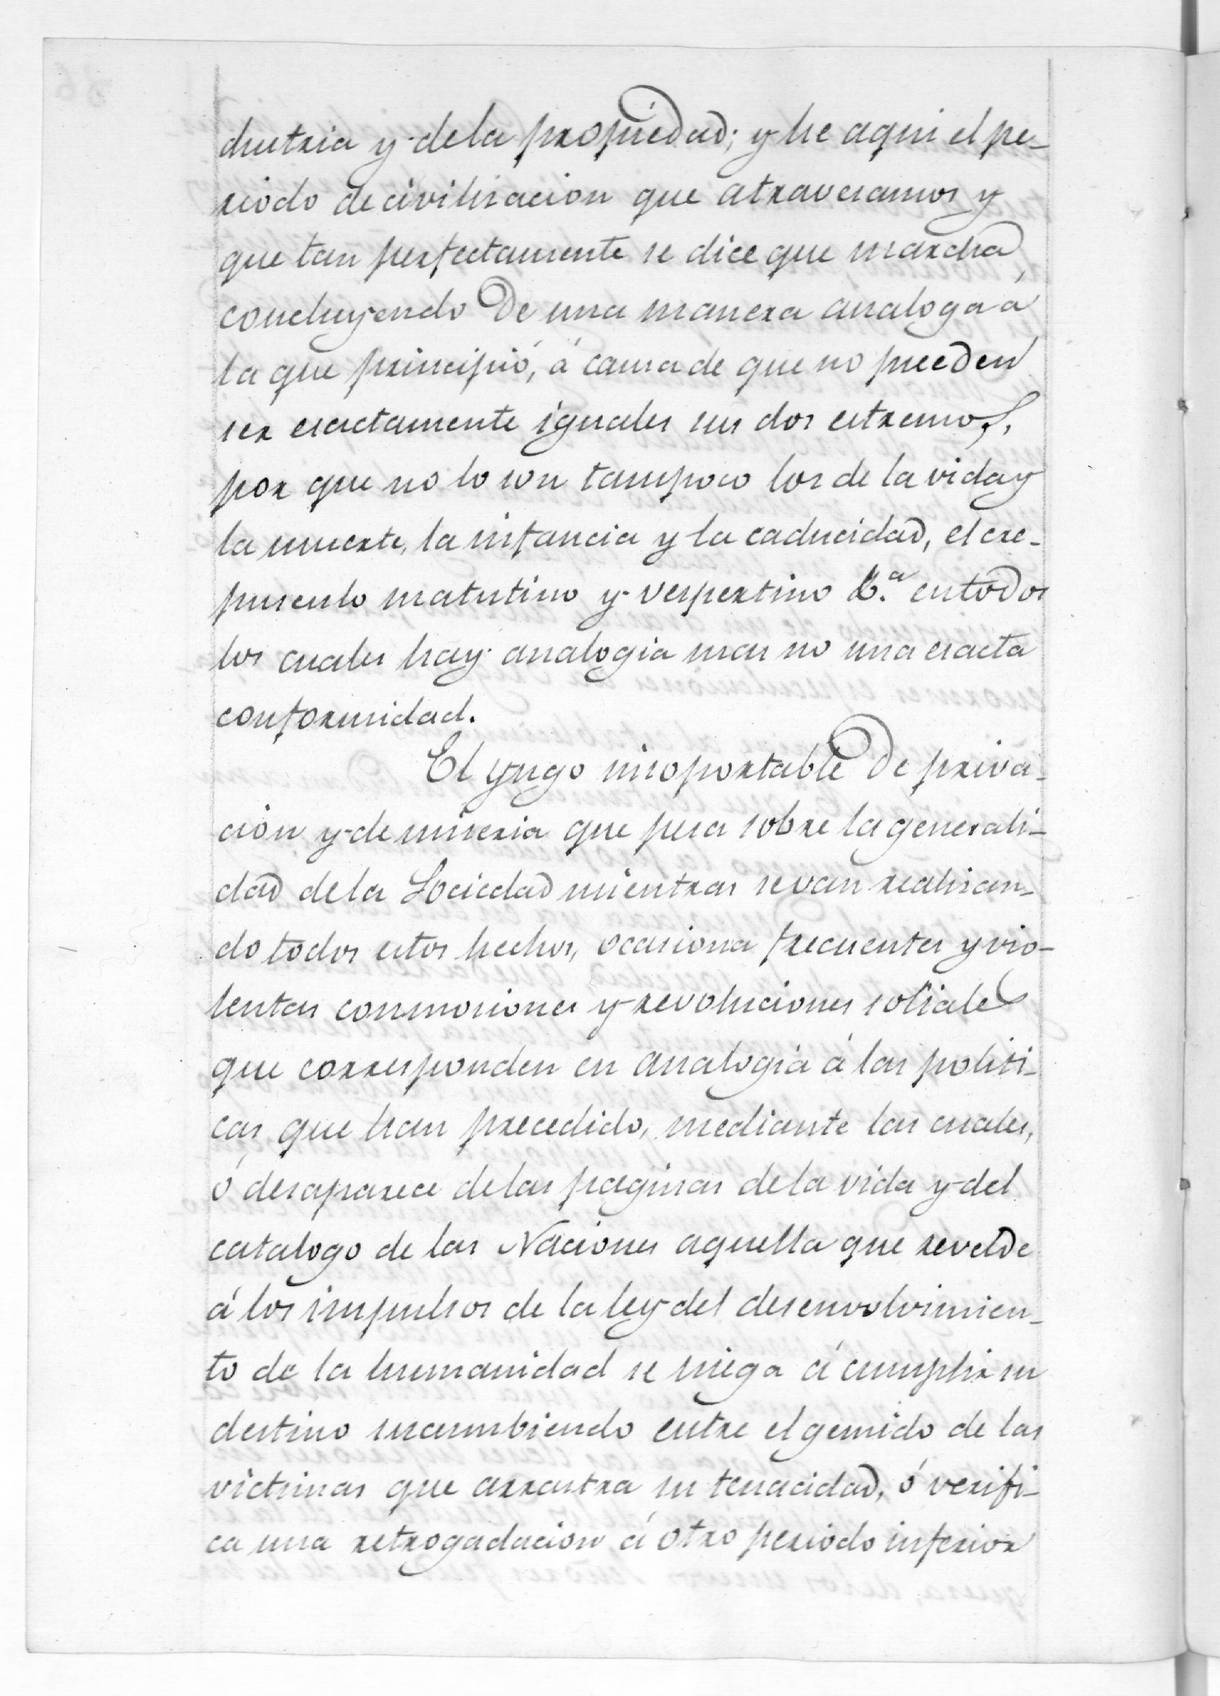 dustria y de la propiedad; y he aqui el pe-
riodo de civilisacion que atravesamos y
que tan perfectamente se dice que marcha,
concluyendo de una manera analoga á
la que principió, á causa de que no pueden
ser esactamente iguales sus dos estremos,
por que no lo son tampoco los de la vida y
la muerte, la infancia y la caducidad, el cre-
pusculo matutino y vespertino &.a en todos
los cuales hay analogia mas no una esacta
conformidad.
El yugo insoportable de priva-
cion y de miseria que pesa sobre la generali-
dad de la Sociedad mientras se van realisan-
do todos estos hechos, ocasiona frecuentes y vio-
lentas conmosiones y revoluciones sociales
que corresponden en analogia á las politi-
cas que han precedido, mediante las cuales,
ó desaparece de las paginas de la vida y del
catalogo de las Naciones aquella que revelde
á los impulsos de la ley del desenvolvimien-
to de la humanidad se niega á cumplir su
destino sucumbiendo entre el gemido de las
victimas que arrastra su tenacidad, ó verifi-
ca una retrogadacion á otro periodo inferior